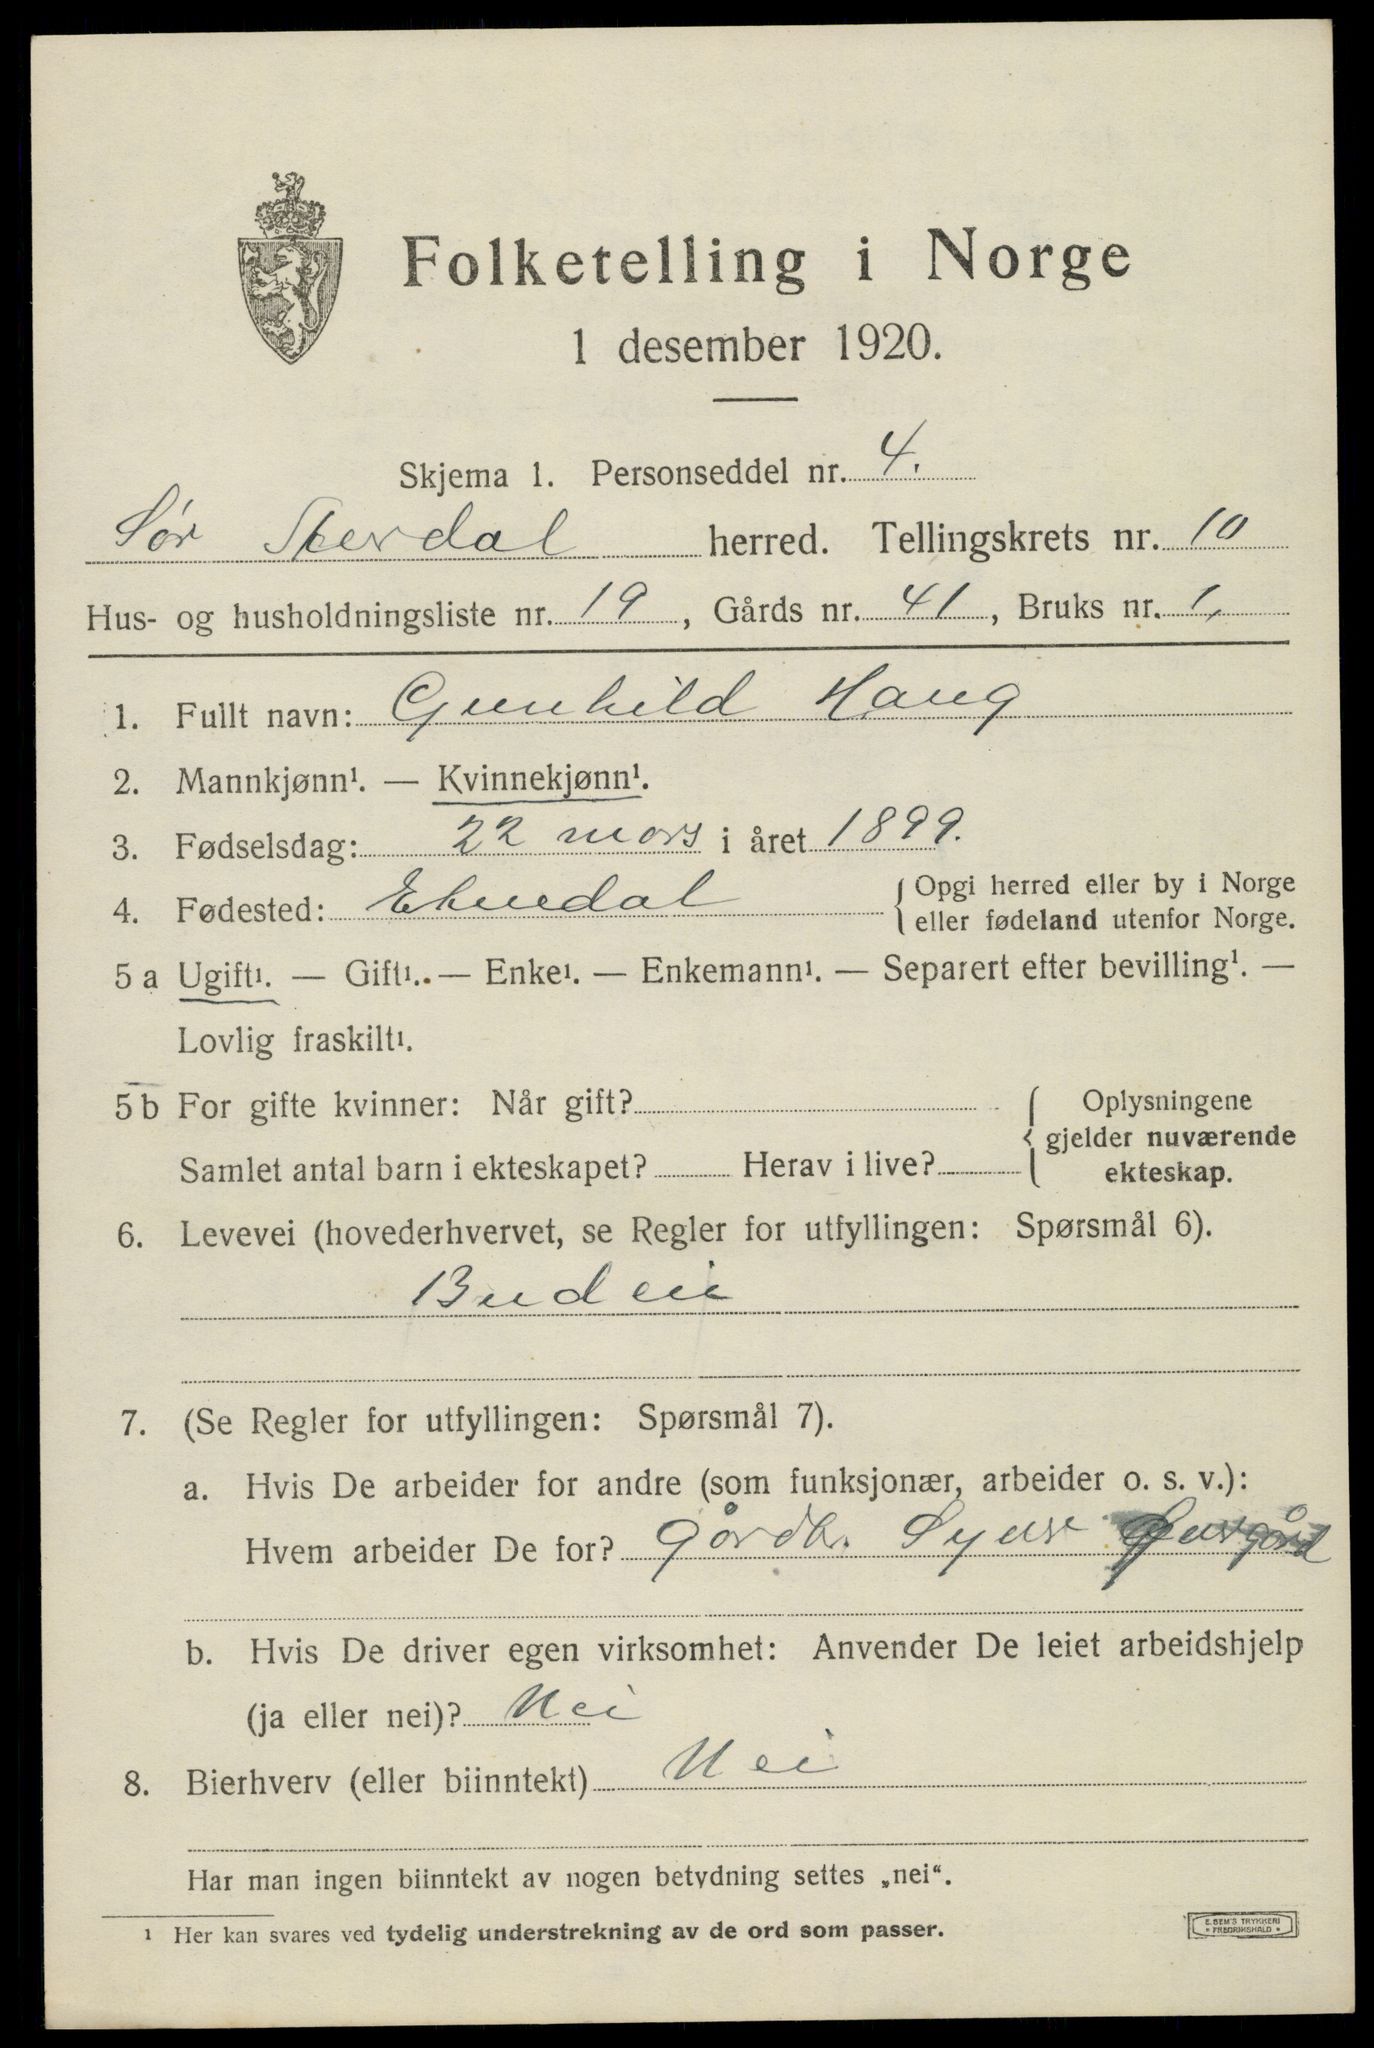 Folketelling i Norge
1 desember 1920.
Skjema 1. Personseddel nr. 4.
Sør Sterdal herred. Tellingskrets nr. 10
Hus- og husholdningsliste nr. 19, Gårds nr. 41, Bruks nr. 1,
1. Fullt navn: Gunhild Haug
2. Mannkjønn¹. — Kvinnekjønn¹.
3. Fødselsdag: 22 mars i året 1899.
4. Fødested: { Opgi herred eller by i Norge
eller fødeland utenfor Norge.
5 a Ugift¹. — Gift¹. — Enke¹. — Enkemann¹. — Separert efter bevilling¹. —
Lovlig fraskilt¹.
5 b For gifte kvinner: Når gift? { Oplysningene
gjelder nuværende
Samlet antal barn i ekteskapet? Herav i live? ekteskap.
6. Levevei (hovederhvervet, se Regler for utfyllingen: Spørsmål 6).
Budeie
7. (Se Regler for utfyllingen: Spørsmål 7).
a. Hvis De arbeider for andre (som funksjonær, arbeider o. s. v.):
Hvem arbeider De for? Gårdbr.
b. Hvis De driver egen virksomhet: Anvender De leiet arbeidshjelp
(ja eller nei)? Nei
8. Bierhverv (eller biinntekt) Nei
Har man ingen biinntekt av nogen betydning settes „nei“.
¹ Her kan svares ved tydelig understrekning av de ord som passer.
E. SEM'S TRYKKERI
* FREDRIKSHALD *